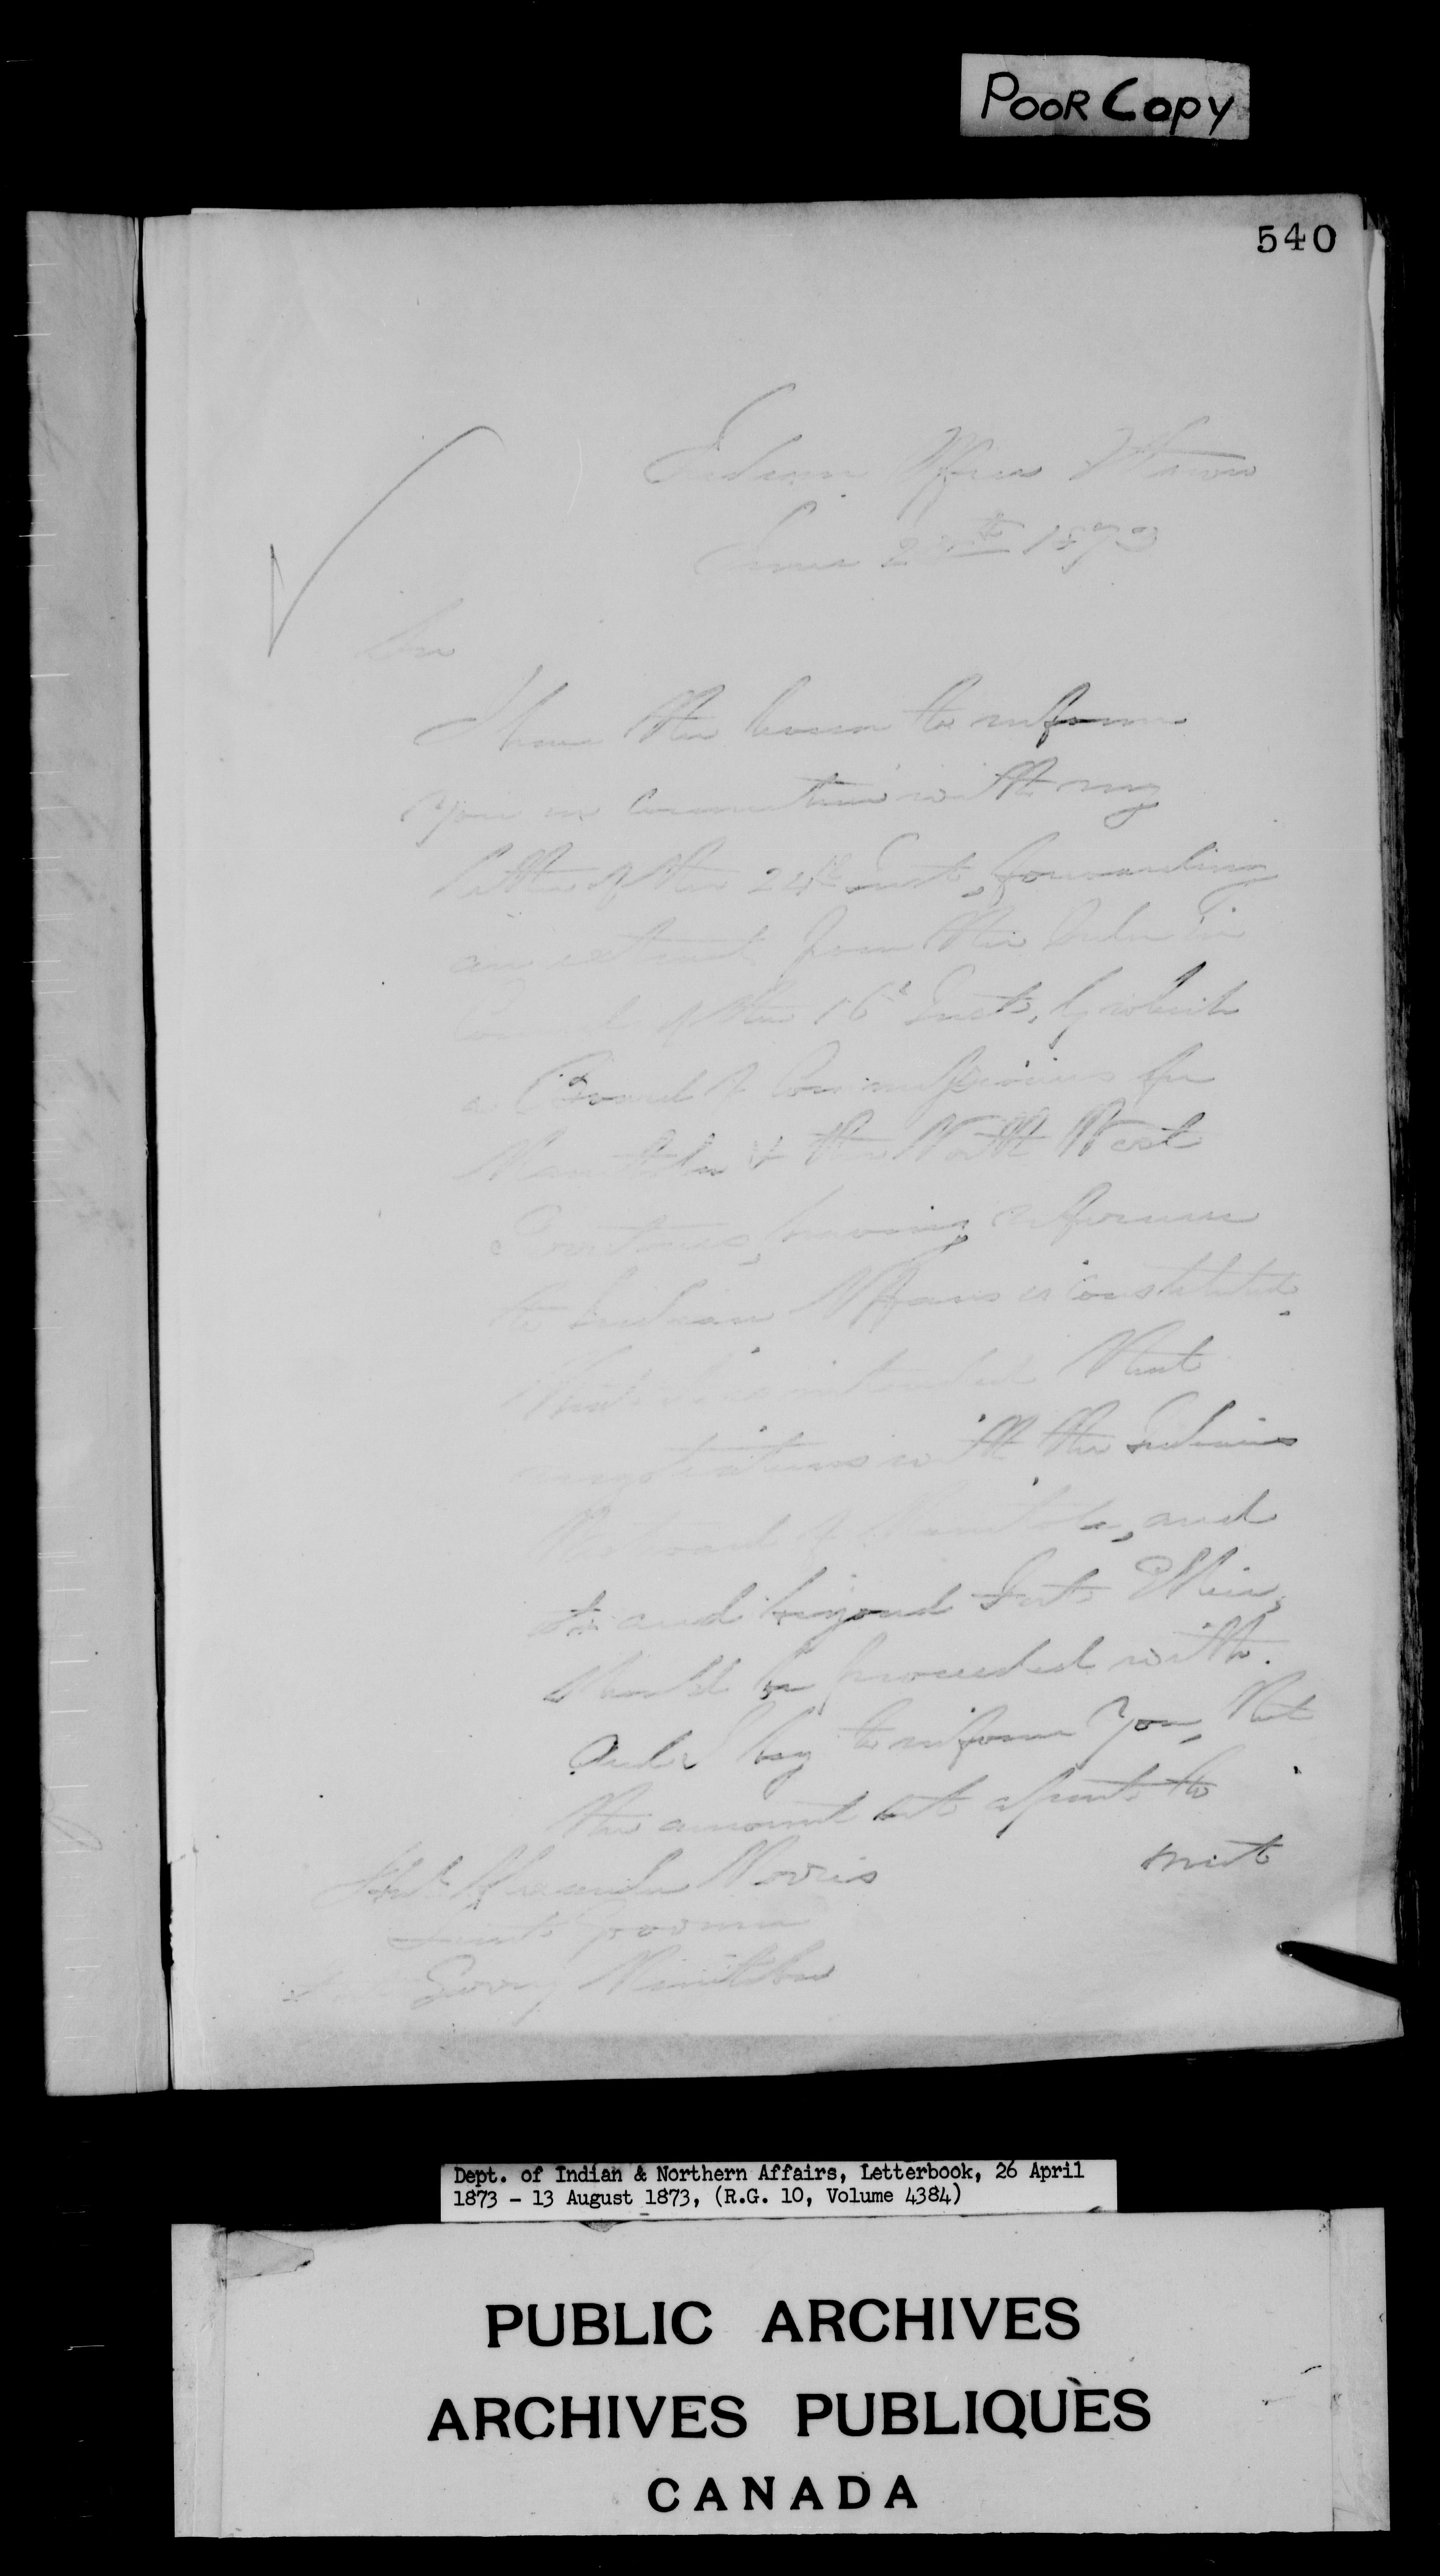 POOR COPY
540
Indian Office Ottawa
June 1873
Sir
I have the honor to inform
you in connection with my
letter of the 24th Inst, forwarding
an extract from the Order in
Council of the 16th Inst, by which
a Board of Commissioners for
Manitoba & the North West
Territories, having reference
to Indian Affairs is constituted,
that it is intended that
negotiations with the Indians
Westward of Manitoba, and
to and beyond Fort Ellice,
should be proceeded with.
And I beg to inform You, that
the amount set apart to
meet
Honble Alexander Morris
Lieut Governor
Fort Garry Manitoba
Dept. of Indian & Northern Affairs, Letterbook, 26 April
1873 - 13 August 1873, (R.G. 10, Volume 4384)
PUBLIC ARCHIVES
ARCHIVES PUBLIQUES
CANADA